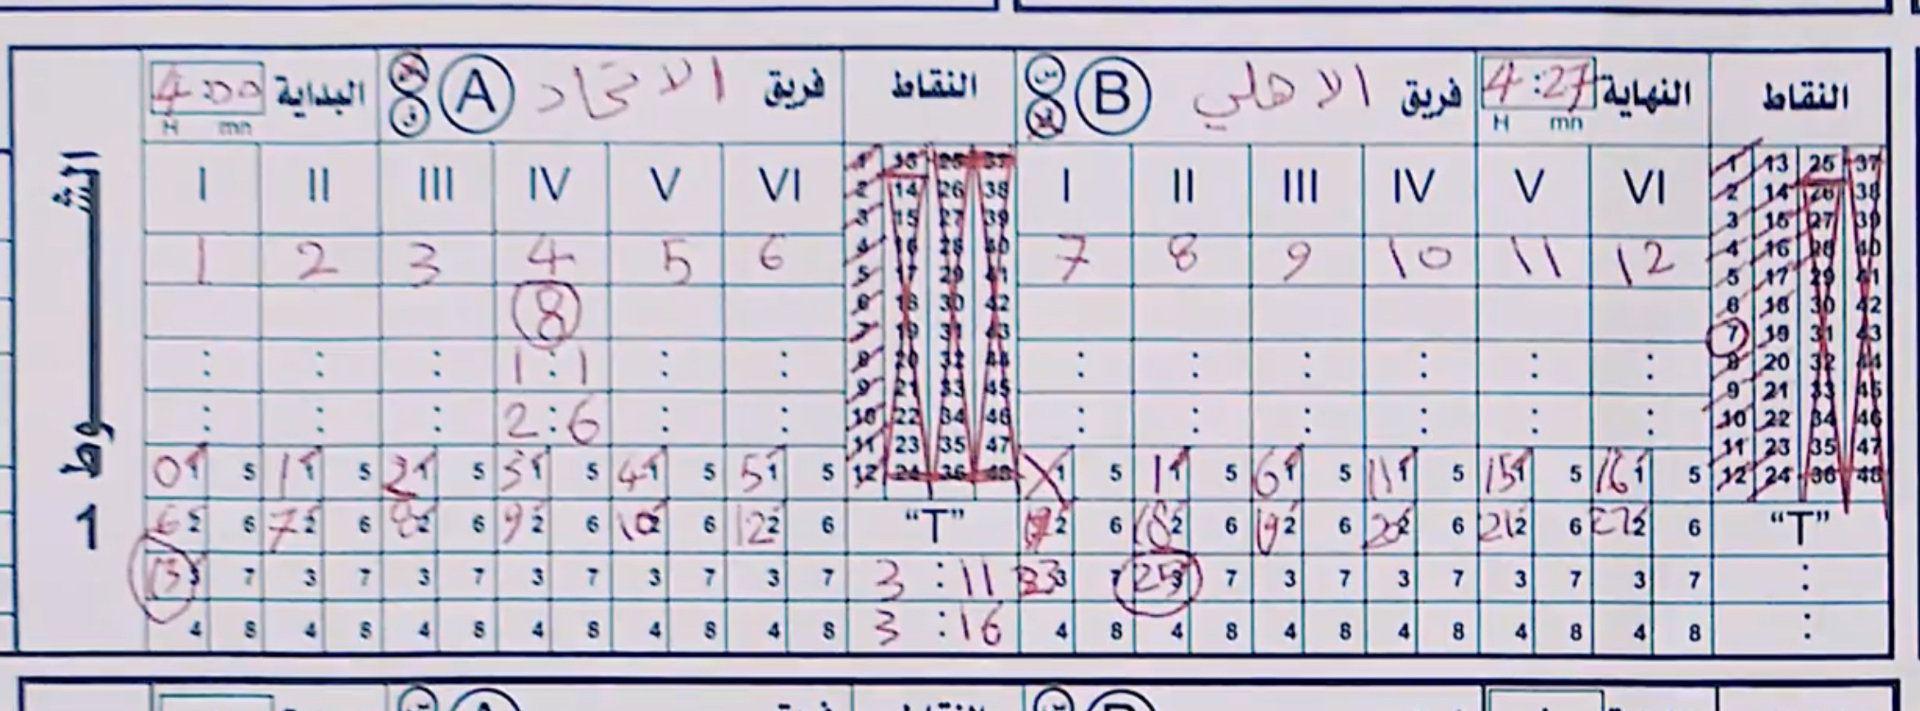 الشوط 1
4:00 البداية H mn س ف A فريق الاتحاد النقاط س ف B فريق الاهلي 4:27 النهاية H mn النقاط
I II III IV V VI I II III IV V VI
1 2 3 4 5 6 7 8 9 10 11 12
8
: : : 1:1 : : : : : : : :
: : : 2:6 : : : : : : : :
1 13 25 37 1 13 25 37
2 14 26 38 2 14 26 38
3 15 27 39 3 15 27 39
4 16 28 40 4 16 28 40
5 17 29 41 5 17 29 41
6 18 30 42 6 18 30 42
7 19 31 43 7 19 31 43
8 20 32 44 8 20 32 44
9 21 33 45 9 21 33 45
10 22 34 46 10 22 34 46
11 23 35 47 11 23 35 47
12 24 36 48 12 24 36 48
0 1 5 1 1 5 2 1 5 3 1 5 4 1 5 5 1 5 X 1 5 1 1 5 6 1 5 11 1 5 15 1 5 16 1 5
6 2 6 7 2 6 8 2 6 9 2 6 10 2 6 12 2 6 "T" 17 2 6 18 2 6 19 2 6 20 2 6 21 2 6 22 2 6 "T"
13 3 7 3 7 3 7 3 7 3 7 3 7 3:11 23 3 7 25 3 7 3 7 3 7 3 7 3 7 :
4 8 4 8 4 8 4 8 4 8 4 8 3:16 4 8 4 8 4 8 4 8 4 8 4 8 :
A النقاط B